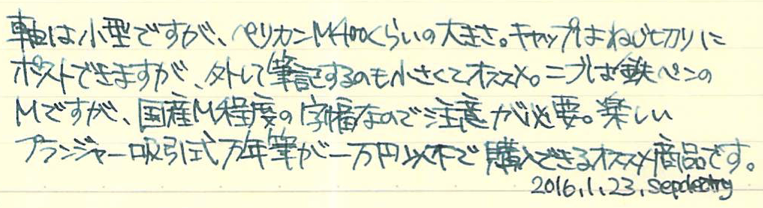 軸は小型ですが、ペリカンM400くらいの大きさ。キャップはねじ切りに
ポストできますが、外して筆記するのも小さくてオススメ。ニブは鉄ペンの
Mですが、国産M程度の字幅なので注意が必要。楽しい
プランジャー吸引式万年筆が一万円以下で購入できるオススメ商品です。
2016.1.23.